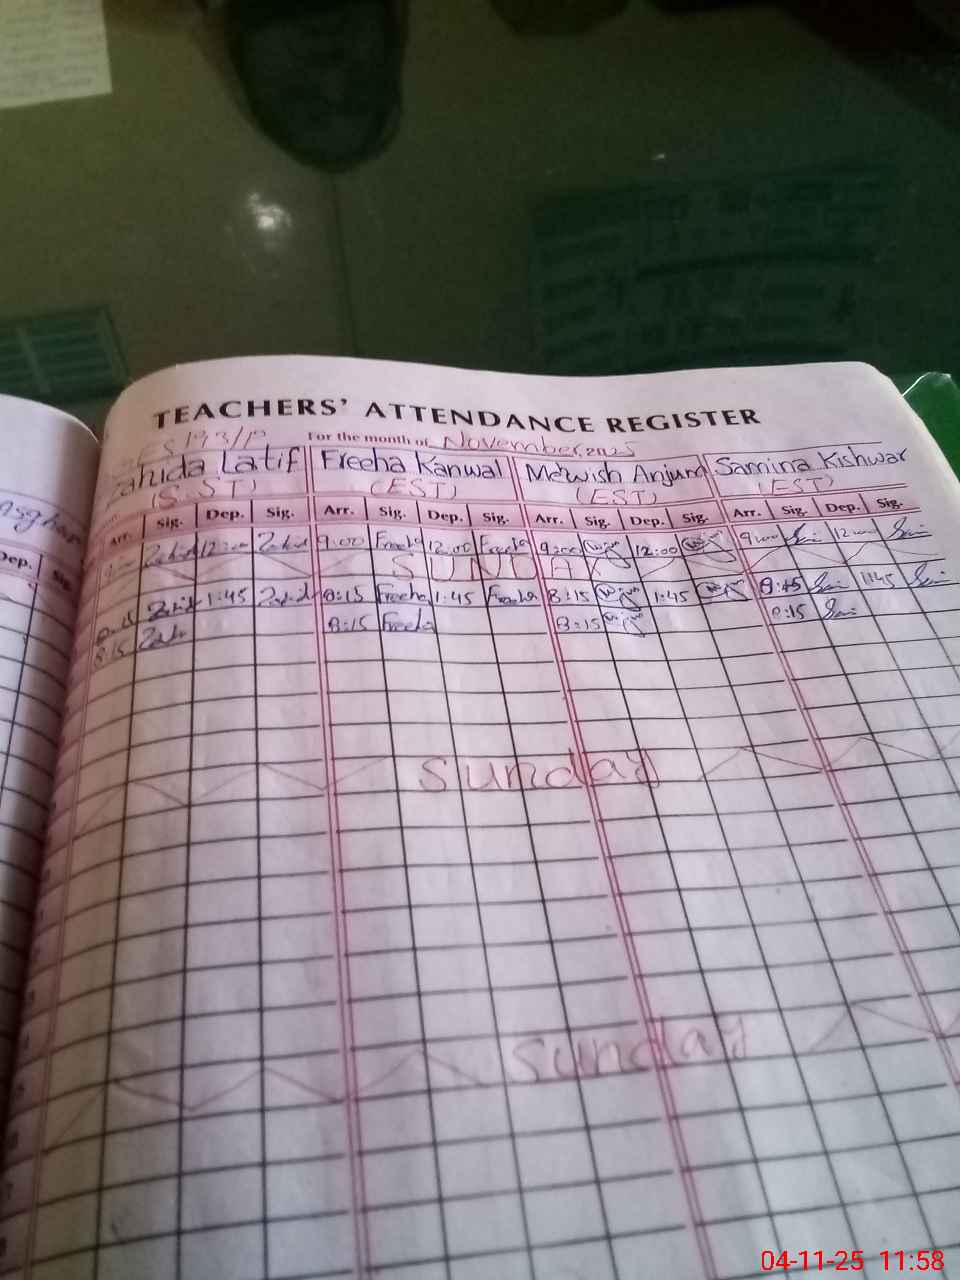 TEACHERS' ATTENDANCE REGISTER
For the month of November 2025
Zahida Latif Freeha Kanwal Mewish Anjum Samina Kishwar
(S.ST) (EST) (EST) (EST)
Arr. Sig. Dep. Sig. Arr. Sig. Dep. Sig. Arr. Sig. Dep. Sig. Arr. Sig. Dep. Sig.
Dep. Sig
Zahid 12:00 Zahid 9:00 Freeha 12:00 Freeha 9:00 12:00 9:00 12:00
SUNDAY
8:15 Zahid 1:45 Zahid 8:15 Freeha 1:45 Freeha 8:15 1:45 8:15 1:45
8:15 8:15 Freeha 8:15 8:15
Sunday
Sunday
04-11-25 11:58